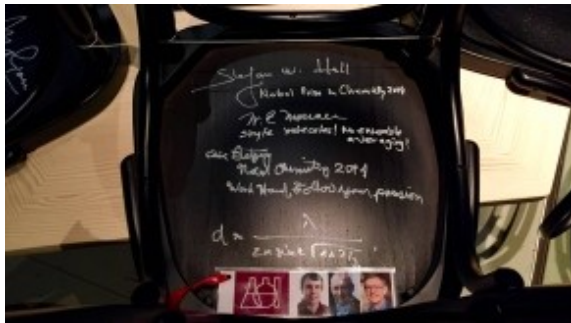 Stefan W. Hell
Nobel Prize in Chemistry 2014
W. E. Moerner
single molecules! No ensemble
averaging!
Eric Betzig
Nobel Chemistry 2014
Work Hard, Follow your passion
d ≈ λ
2n sinα √